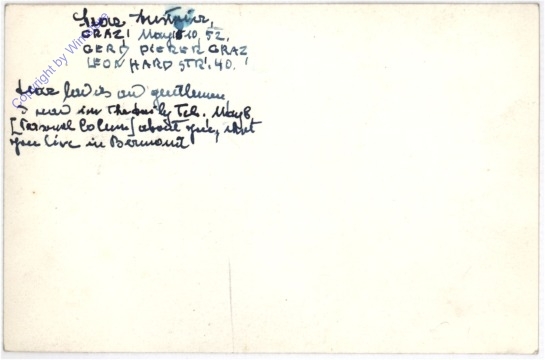 GRAZ! May 10, 52.
GERD PIERER GRAZ
LEONHARDSTR. 40.
Dear ladies and gentlemen,
I read in The Daily Tel. May 6
[Personal Column] about you, that
you live in
Copyright by